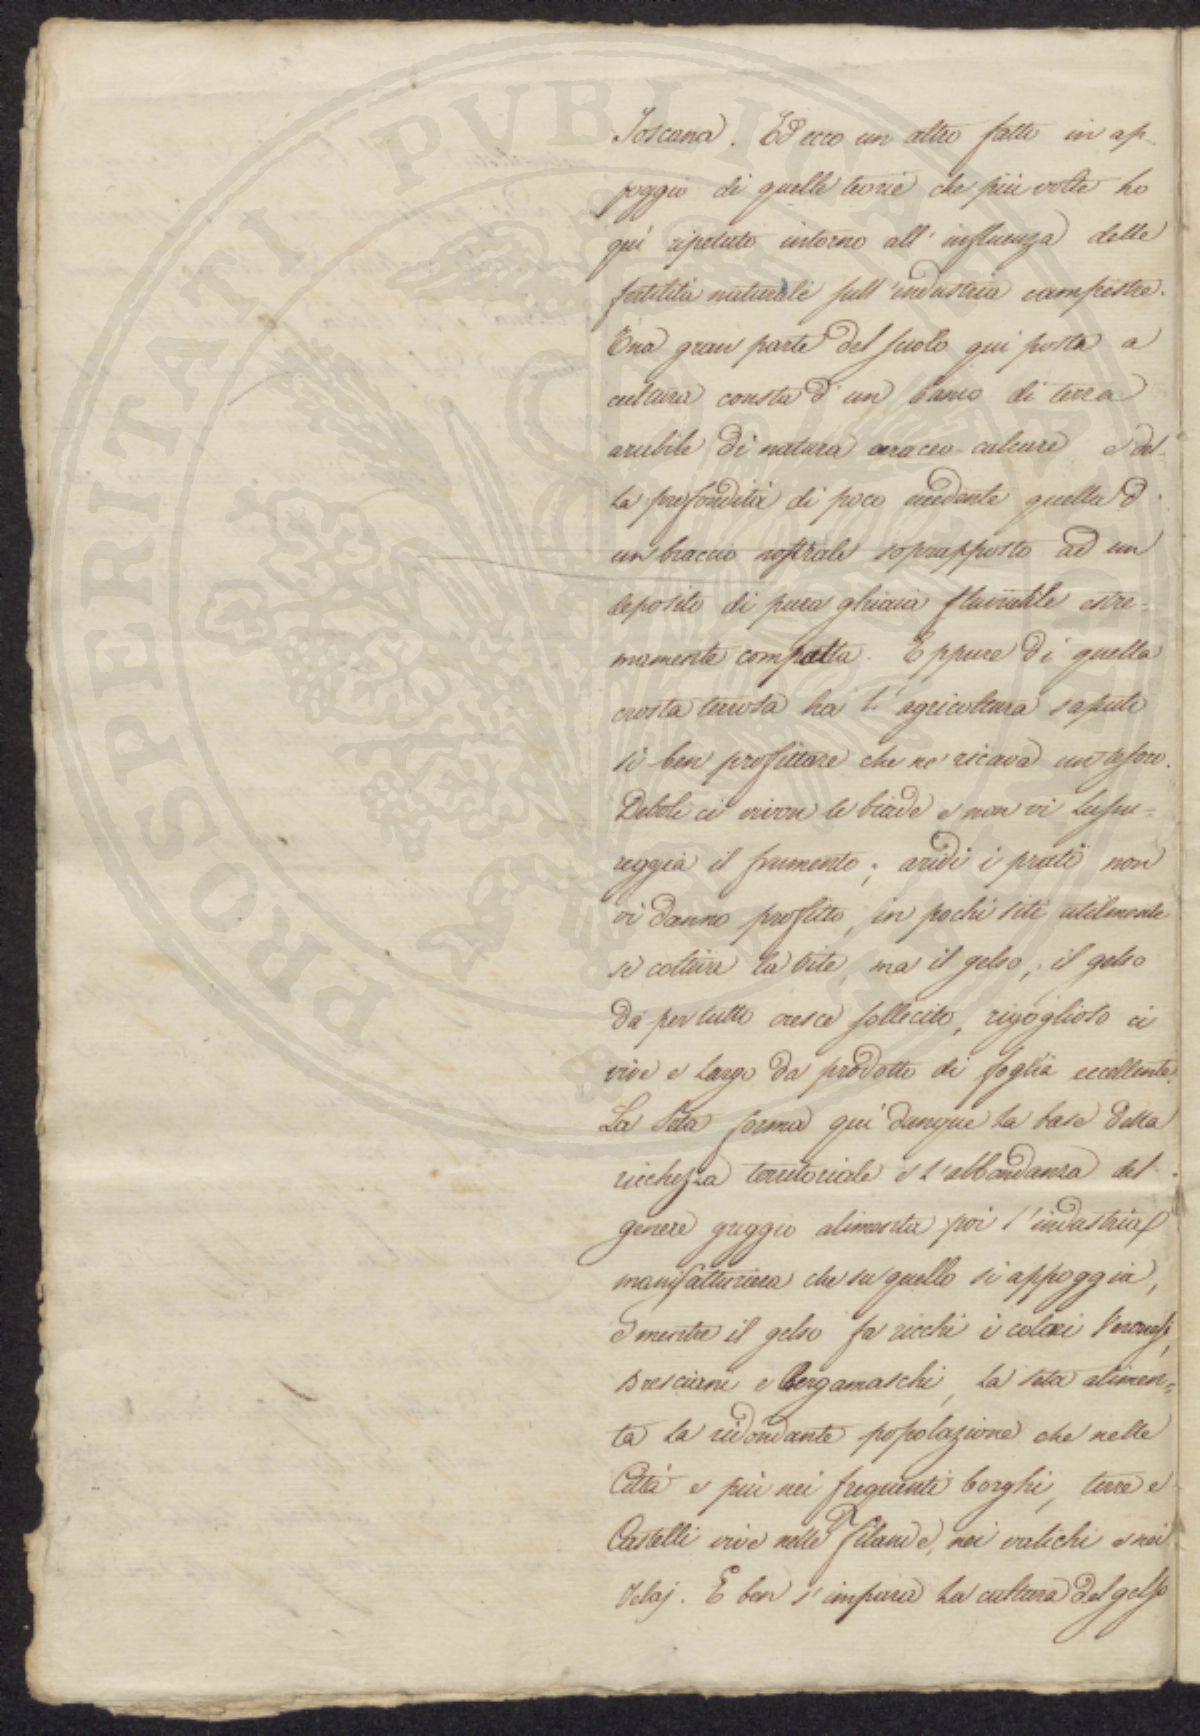 Toscana. Ed ecco un altro fatto in ap-
poggio di quelle teorie che più volte ho
quì ripetute intorno all'influenza delle
fertilità naturale sull'industria campestre.
Una gran parte del suolo qui posta a
cultura consta d'un banco di terra
arabile di natura calcare e del-
la profondità di poco eccedente quella d'
un braccio nostrale soprapposto ad un
deposito di pura ghiaia fluviatile estre-
mamente compatta. Eppure di quella
crosta terrosa ha l'agricoltura saputo
sì ben profittare che ne ricava un tesoro.
Debole ci vivon le biade e non vi lussu-
reggia il frumento; aridi i prati non
vi danno profitto, in pochi siti utilmente
si coltiva la vite, ma il gelso, il gelso
da per tutto cresce sollecito, rigoglioso ci
vive e largo da prodotto di foglia eccellente.
La Seta forma qui dunque la base della
ricchezza territoriale e l'abbondanza del
genere greggio alimenta poi l'industria
manifatturiera che su quello si appoggia,
e mentre il gelso fa ricchi i coloni Veronesi,
Bresciani e Bergamaschi, la seta alimen-
ta la ridondante popolazione che nelle
Città e più nei frequenti borghi, terre e
Castelli vive nelle Filande, nei valichi e nei
Telaj. E ben s'impara la cultura del gelso
PROSPERITATI PVBLICAE